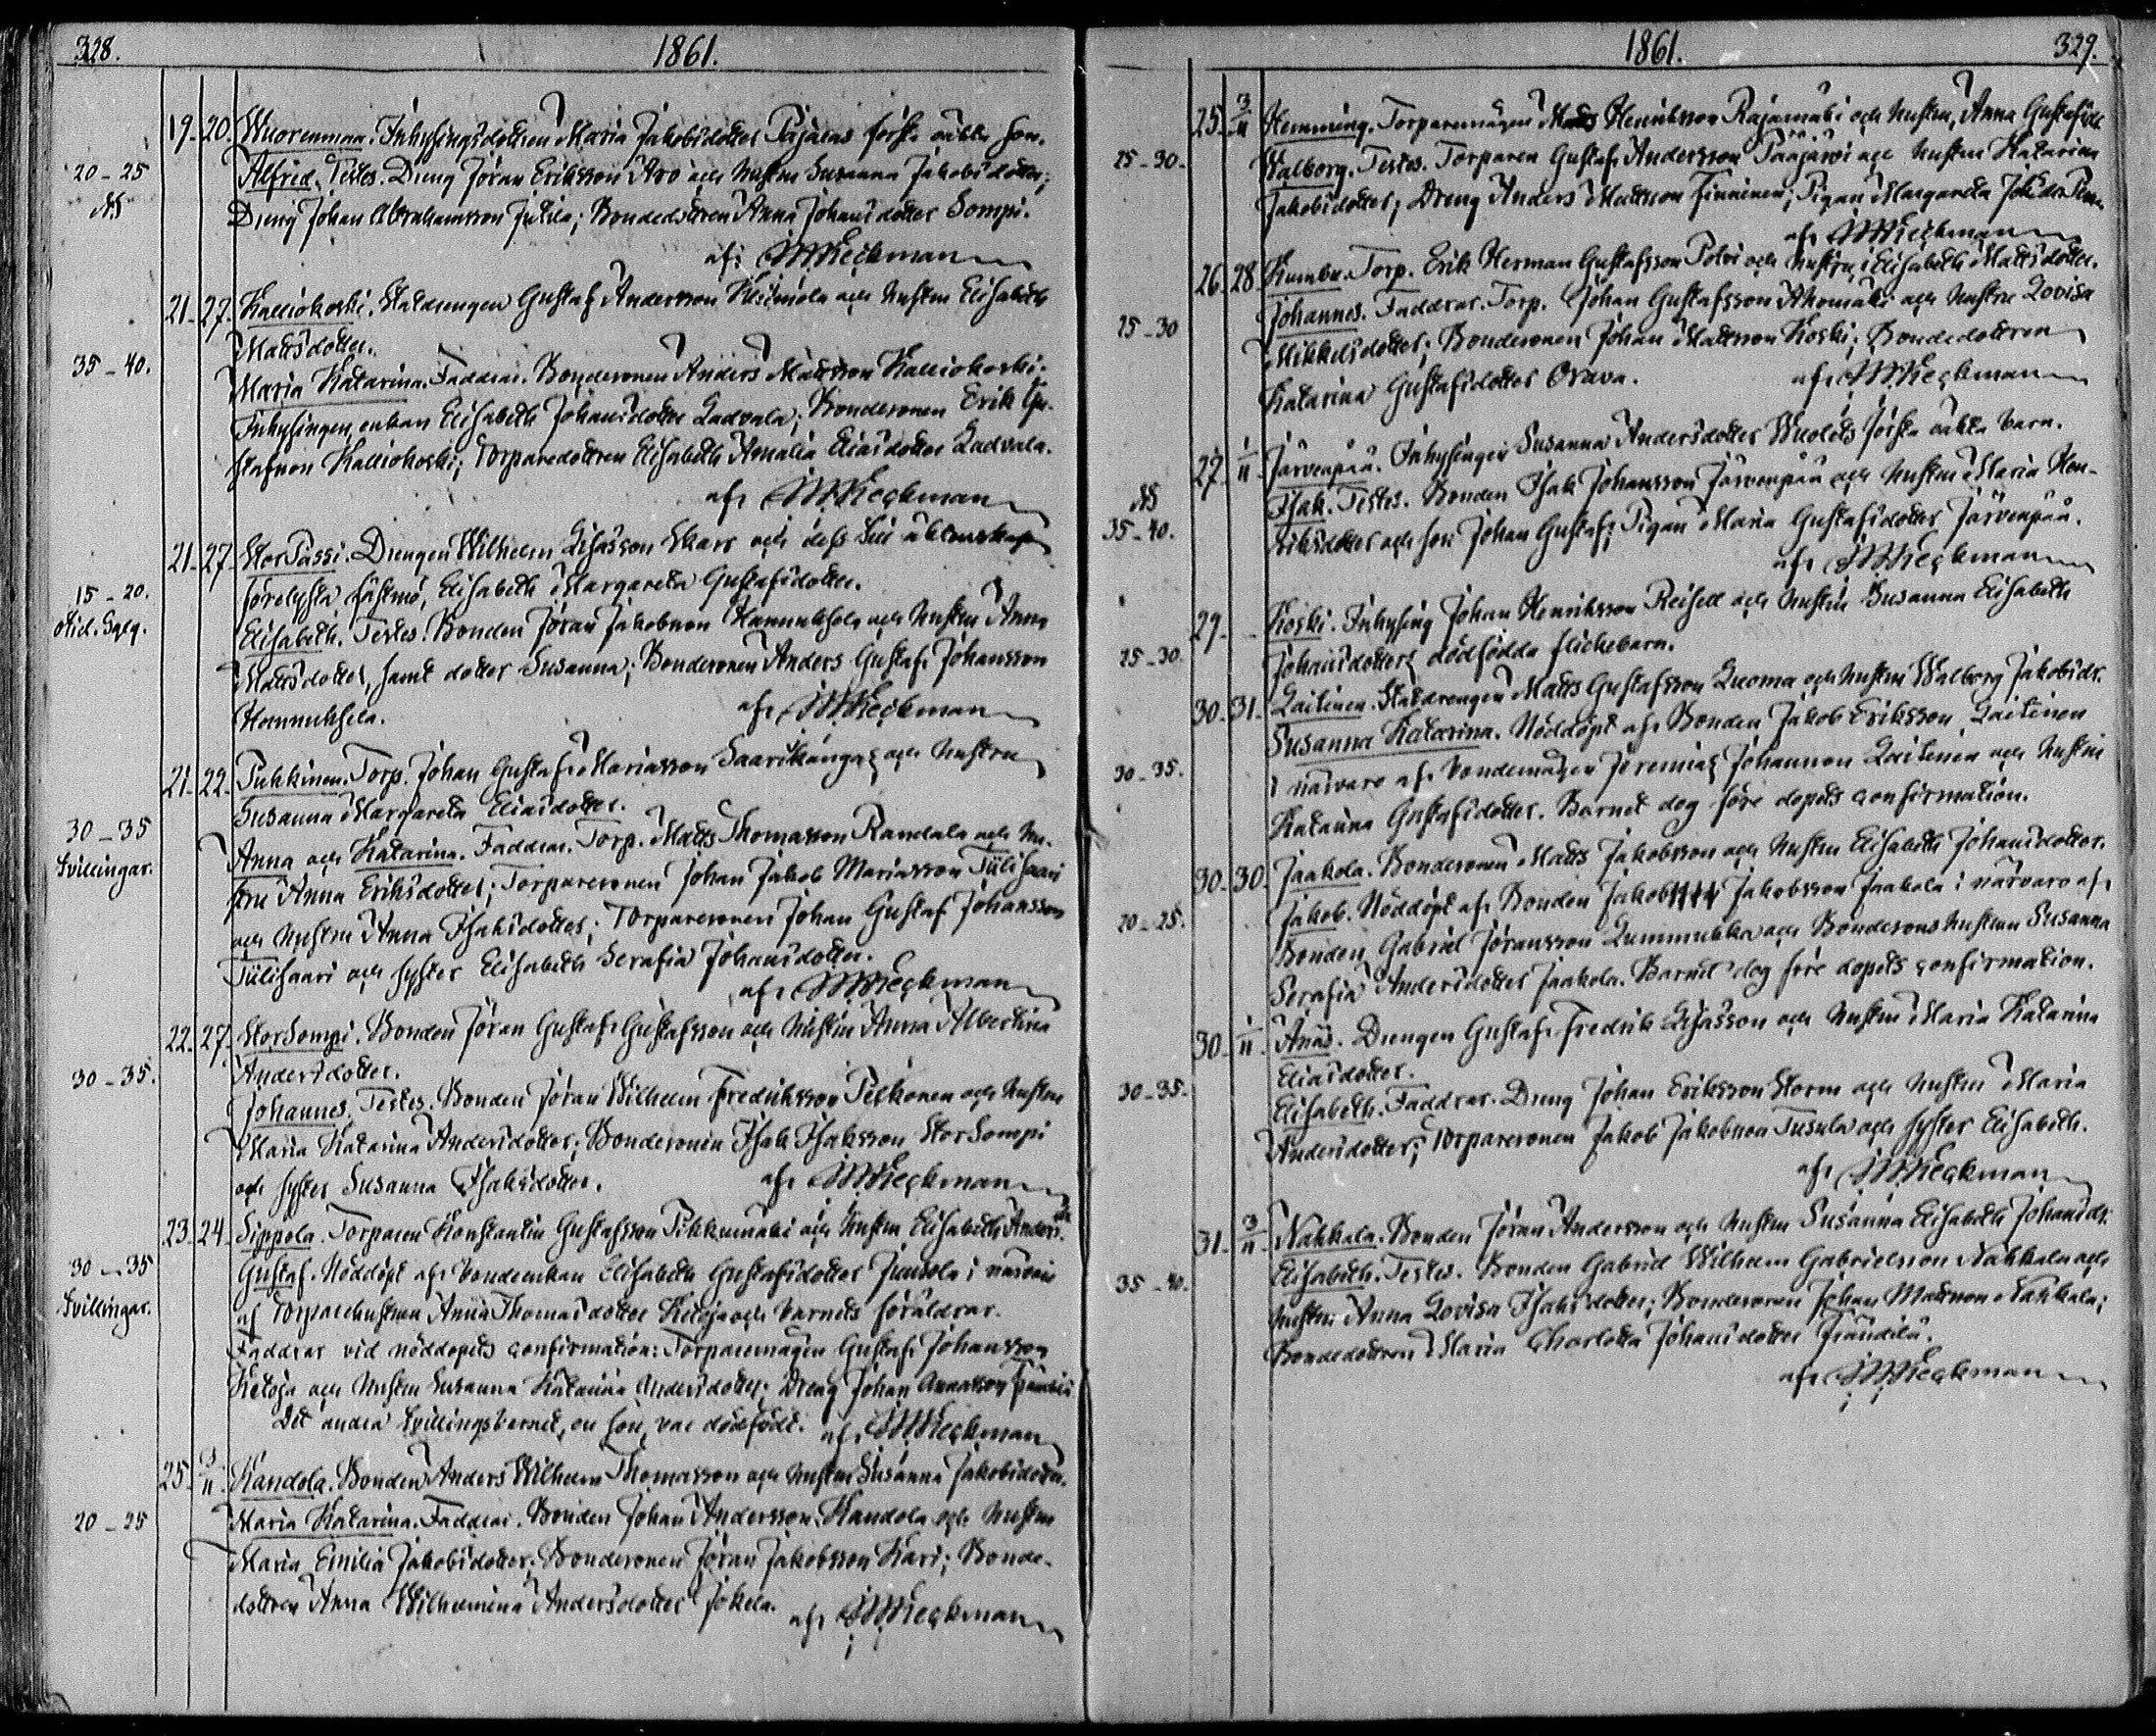 328. 1861.
19. 20. Wuorenmaa. Inhysingsdottren Maria Jakobsdotter Pajalas första oäkta son.
20-25 Alfred. Testes. Dreng Jöran Eriksson Aro och hustru Susanna Jakobsdotter;
Dreng Johan Abrahamsson Jutila; Bondedottren Anna Johansdotter Sompi.
af
21. 27. Kalliokoski. Statdrengen Gustaf Andersson och hustru Elisabeth
Mattsdotter.
35-40. Maria Katarina. Faddrar. Bondesonen Anders Mattsson Kalliokoski;
Inhysingen, enkan Elisabeth Johansdotter Ladvala; Bondesonen Erik Gu-
stafsson Kalliokoski; Torparedottren Elisabeth Amalia Eliasdotter Ladvala.
af
21. 27. StorPassi. Drengen Wilhelm Skarp och dess till äktenskap
15-20. förelysta fästmö, Elisabeth Margareta Gustafsdotter.
Elisabeth. Testes. Bonden Jöran Jakobsson Hannuksela och hustru Anna
Mattsdotter, samt dotter Susanna; Bondesonen Anders Gustaf Johansson
Hannuksela. af
21. 22. Puhkinen. Torp. Johan Gustaf Mariasson Saarikangas och hustru
Susanna Margareta Eliasdotter.
30-35 Anna och Katarina. Faddrar. Torp. Matts Thomasson Randala och hu-
Tvillingar. stru Anna Eriksdotter; Torparesonen Johan Jakob Mariasson Tülisaari
och hustru Anna Isaksdotter; Torparesonen Johan Gustaf Johansson
Tülisaari och syster Elisabeth Serafia Johansdotter.
af
22. 27. StorSompi. Bonden Jöran Gustaf Gustafsson och hustru Anna Albertina
30-35. Andersdotter.
Johannes. Testes. Bonden Jöran Wilhelm Fredriksson Pelkonen och hustru
Maria Katarina Andersdotter; Bondesonen Isak Isaksson StorSompi
och syster Susanna Isaksdotter. af
23. 24. Sippola. Torparen Konstantin Gustafsson och hustru Elisabeth Anders-
30-35 Gustaf. Nöddöpt af bondeenkan Elisabeth Gustafsdotter i närvaro
Tvillingar. af Torparehustrun Anna Thomasdotter Ketoja och barnets föräldrar.
Faddrar vid nöddopets confirmation: Torparemågen Gustaf Johansson
Ketoja och hustru Susanna Katarina Andersdotter; Dreng Johan Annasson
Det andra tvillingsbarnet, en son, var dödfödt. af
25. 3/11. Kandola. Bonden Anders Wilhelm Thomasson och hustru Susanna Jakobsdotter.
20-25 Maria Katarina. Faddrar. Bonden Johan Andersson Kandola och hustru
Maria Emilia Jakobsdotter; Bondesonen Jöran Jakobsson Kari; Bonde-
dottren Anna Wilhelmina Andersdotter Jokela. af
1861. 329.
25. 3/11 Hemming. Torparemågen Matts Henriksson Rajamäki och hustru, Anna Gustafsdr.
25-30. Walborg. Testes. Torparen Gustaf Andersson Pääjärvi och hustru Katarina
Jakobsdotter; Dreng Anders Mattsson Finninen; Pigan Margareta
af
26. 28. Kumbu. Torp. Erik Herman Gustafsson Polvi och hustru, Elisabeth Mattsdotter.
25-30 Johannes. Faddrar. Torp. Johan Gustafsson Ahomäki och hustru Lovisa
Mikkelsdotter; Bondesonen Johan Mattsson Koski; Bondedottren
Katarina Gustafsdotter Orava. af
27. 1/11 Järvenpää. Inhysingen Susanna Andersdotter första oäkta barn.
35-40. Isak. Testes. Bonden Isak Johansson Järvenpää och hustru Maria Hen-
riksdotter och son Johan Gustaf; Pigan Maria Gustafsdotter Järvenpää.
af
29. Koski. Inhysing Johan Henriksson Reisell och hustru Susanna Elisabeth
25-30. Johansdotters dödfödda flickebarn.
30. 31. Laitinen. Statdrengen Matts Gustafsson Luoma och hustru Walborg Jakobsdr.
Susanna Katarina. Nöddöpt af Bonden Jakob Eriksson Laitinen
30-35. i närvaro af bondemågen Jeremias Johansson Laitinen och hustru
Katarina Gustafsdotter. Barnet dog före dopets confirmation.
30. 30. Jaakola. Bondesonen Matts Jakobsson och hustru Elisabeth Johansdotter.
20-25. Jakob. Nöddöpt af Bonden Jakob Jakobsson Jaakola i närvaro af
Bonden Gabriel Jöransson Lummukka och Bondesons hustrun Susanna
Serafia Andersdotter Jaakola. Barnet dog före dopets confirmation.
30. 1/11. Änäs. Drengen Gustaf Fredrik och hustru Maria Katarina
Eliasdotter.
30-35. Elisabeth. Faddrar. Dreng Johan Eriksson Storm och hustru Maria
Andersdotter; Torparesonen Jakob Jakobsson Tusula och syster Elisabeth.
af
31. 3/11. Nahkala. Bonden Jöran Andersson och hustru Susanna Elisabeth Johansdr.
35-40. Elisabeth. Testes. Bonden Gabriel Wilhelm Gabrielsson Nahkala och
hustru Anna Lovisa Isaksdotter; Bondesonen Johan Mattsson Nahkala;
Bondedottren Maria Charlotta Johansdotter
af